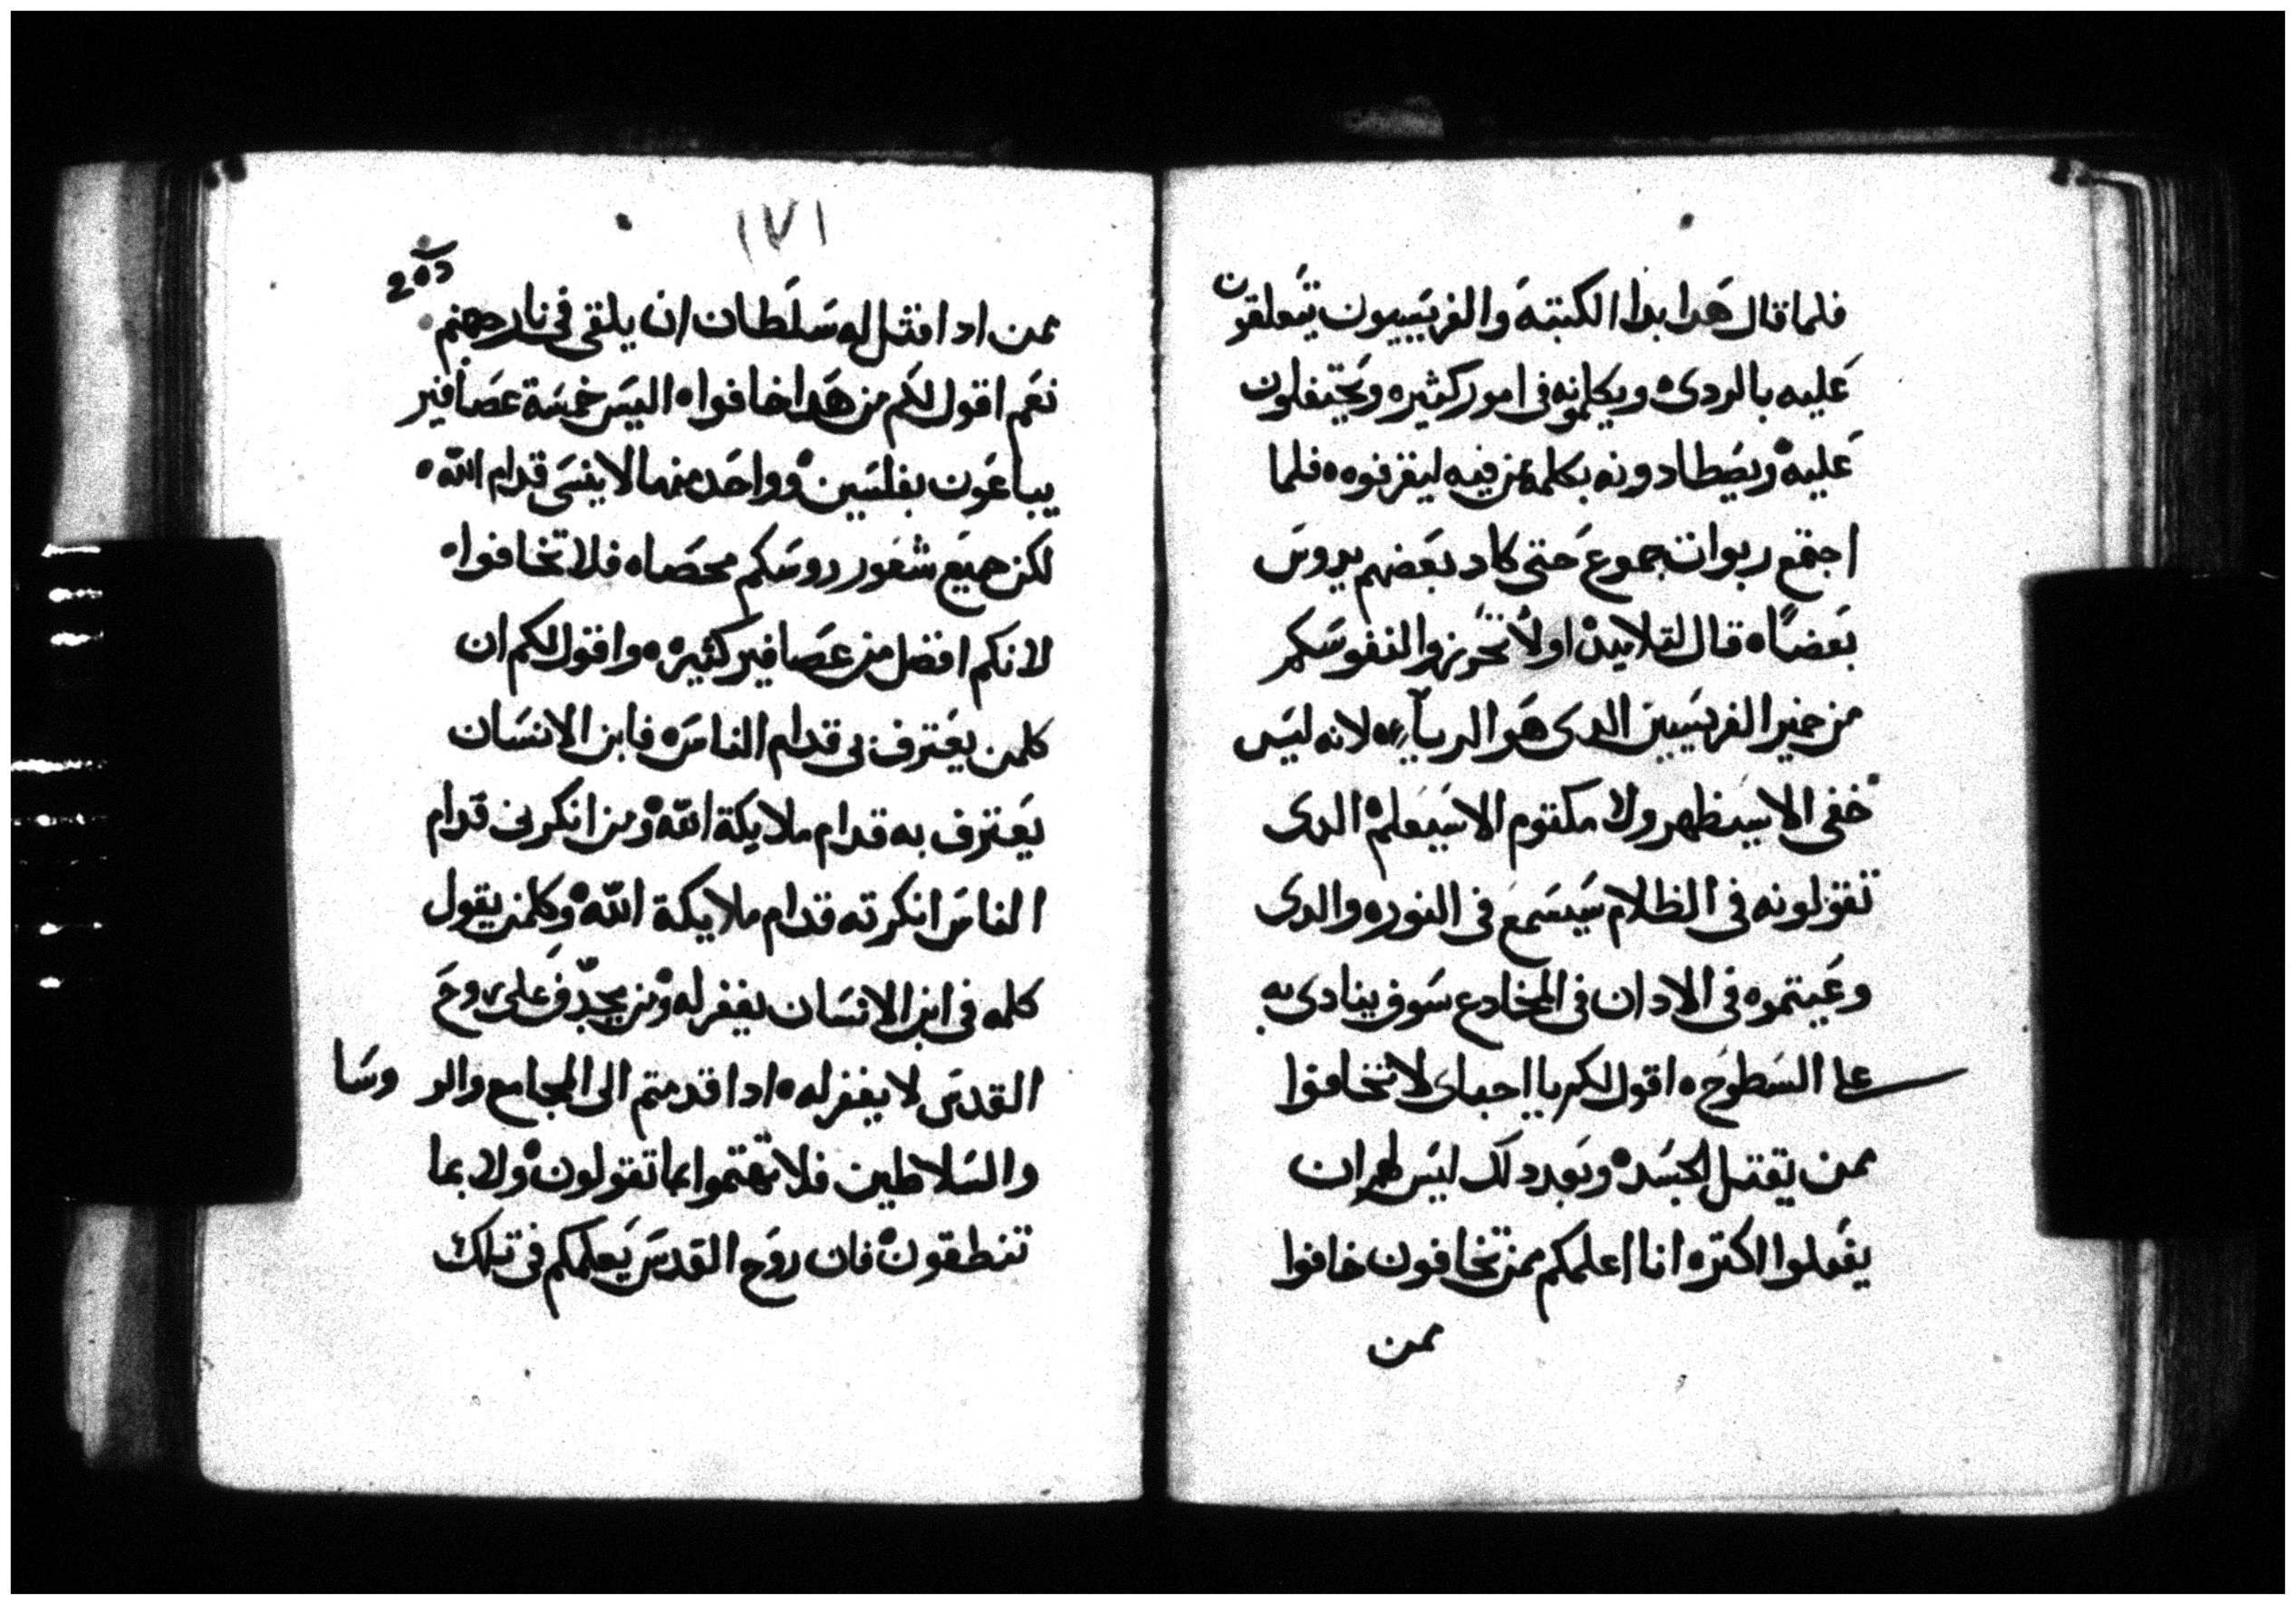 فلما قال هدا بدا الكتبة والفريسيون يتعلقون
عليه بالردى ويكلمونه فى امور كثيره ويحتفلون
عليه ويصطادونه بكلمه من فيه ليقرفوه فلما
اجتمع ربوات جموع حتى كاد بعضهم يدوس
بعضاً قال لتلاميده اولاً تحرزوا لنفوسكم
من خمير الفريسيين الدى هو الرياء لانه ليس
خفى الا سيظهر ولا مكتوم الا سيعلم الدى
تقولونه فى الظلام سيسمع فى النور والدى
وعيتموه فى الادان فى المخادع سوف ينادى به
على السطوح اقول لكم يا احباى لا تخافوا
ممن يقتل الجسد وبعد دلك ليس لهم ان
يفعلوا اكتر انا اعلمكم ممن تخافون خافوا
ممن
١٧١
ممن ادا قتل له سلطان ان يلقى فى نار جهنم
نعم اقول لكم من هدا خافوا اليس خمسة عصافير
يباعون بفلسين وواحد منها لا ينسى قدام الله
لكن جميع شعور روسكم محصاه فلا تخافوا
لانكم افضل من عصافير كثيره واقول لكم ان
كلمن يعترف بى قدام الناس فابن الانسان
يعترف به قدام ملايكة الله ومن انكرنى قدام
الناس انكرته قدام ملايكة الله وكلمن يقول
كلمه فى ابن الانسان يغفر له ومن يجدّف على روح
القدس لا يغفر له ادا قدمتم الى المجامع والروسا
والسلاطين فلا تهتموا بما تقولون ولا بما
تنطقون فان روح القدس يعلمكم فى تلك